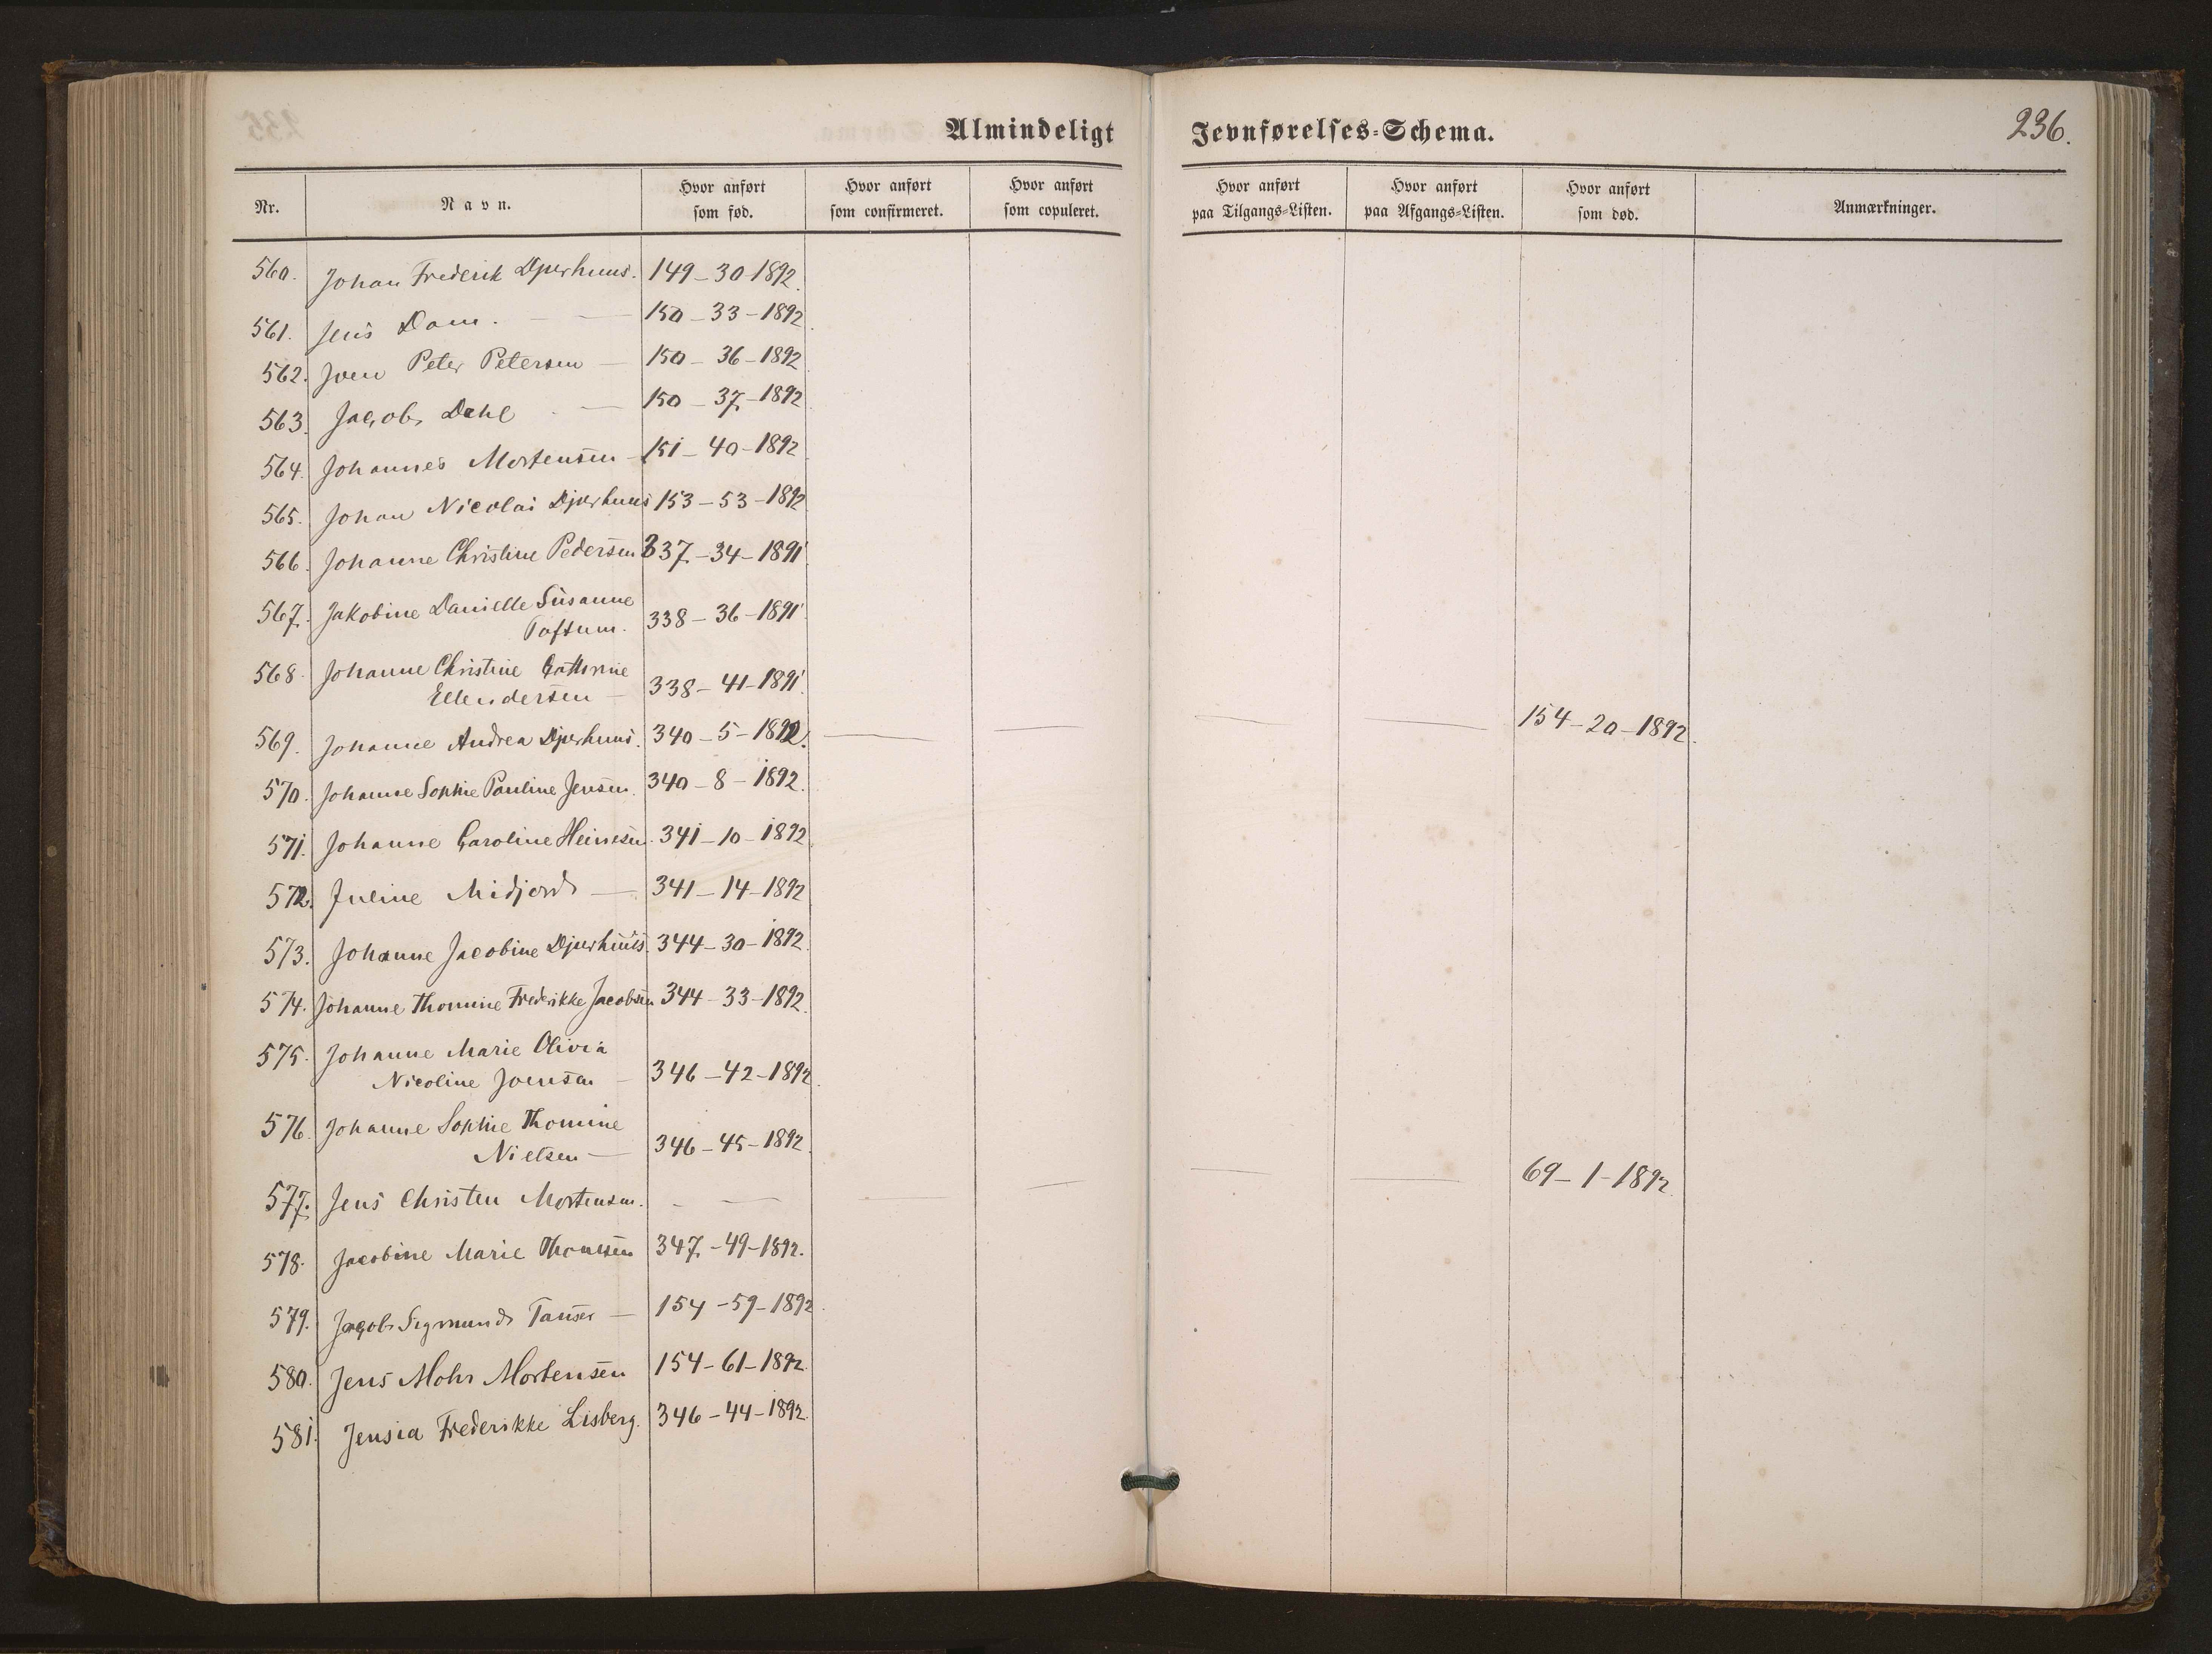 Almindeligt Jevnførelses-Schema. 236.
Nr. Navn. Hvor anført som fød. Hvor anført som confirmeret. Hvor anført som copuleret. Hvor anført paa Tilgangs-Listen. Hvor anført paa Afgangs-Listen. Hvor anført som død. Anmærkninger.
560. Johan Frederik Djurhuus. 149-30-1892.
561. Jens Dam. - — 150-33-1892.
562. Joen Peter Petersen — 150-36-1892
563. Jacob Dahl - — 150-37-1892
564. Johannes Mortensen - 151-40-1892
565. Johan Nicolai Djurhuus 153-53-1892
566. Johanne Christine Pedersen 337-34-1891.
567. Jakobine Danielle Susanne
Toftum. 338-36-1891.
568. Johanne Christine Cathrine
Ellendersen — 338-41-1891.
569. Johanne Andrea Djurhuus. 340-5-1892. — — — — 154-20-1892.
570. Johanne Sophie Pauline Jensen. 340-8-1892.
571. Johanne Caroline Heinesen. 341-10-1892
572. Juline Midjord — 341-14-1892
573. Johanne Jacobine Djurhuus. 344-30-1892.
574. Johanne Thomine Frederikke Jacobsen 344-33-1892.
575. Johanne Marie Olivia
Nicoline Joensen — 346-42-1892.
576. Johanne Sophie Thomine
Nielsen — 346-45-1892.
577. Jens Christen Mortensen. - — — — — — 69-1-1892.
578. Jacobine Marie Thomsen 347-49-1892.
579. Jacob Sigmund — 154-59-1892.
580. Jens Mohr Mortensen 154-61-1892.
581. Jensia Frederikke Lisberg. 346-44-1892.